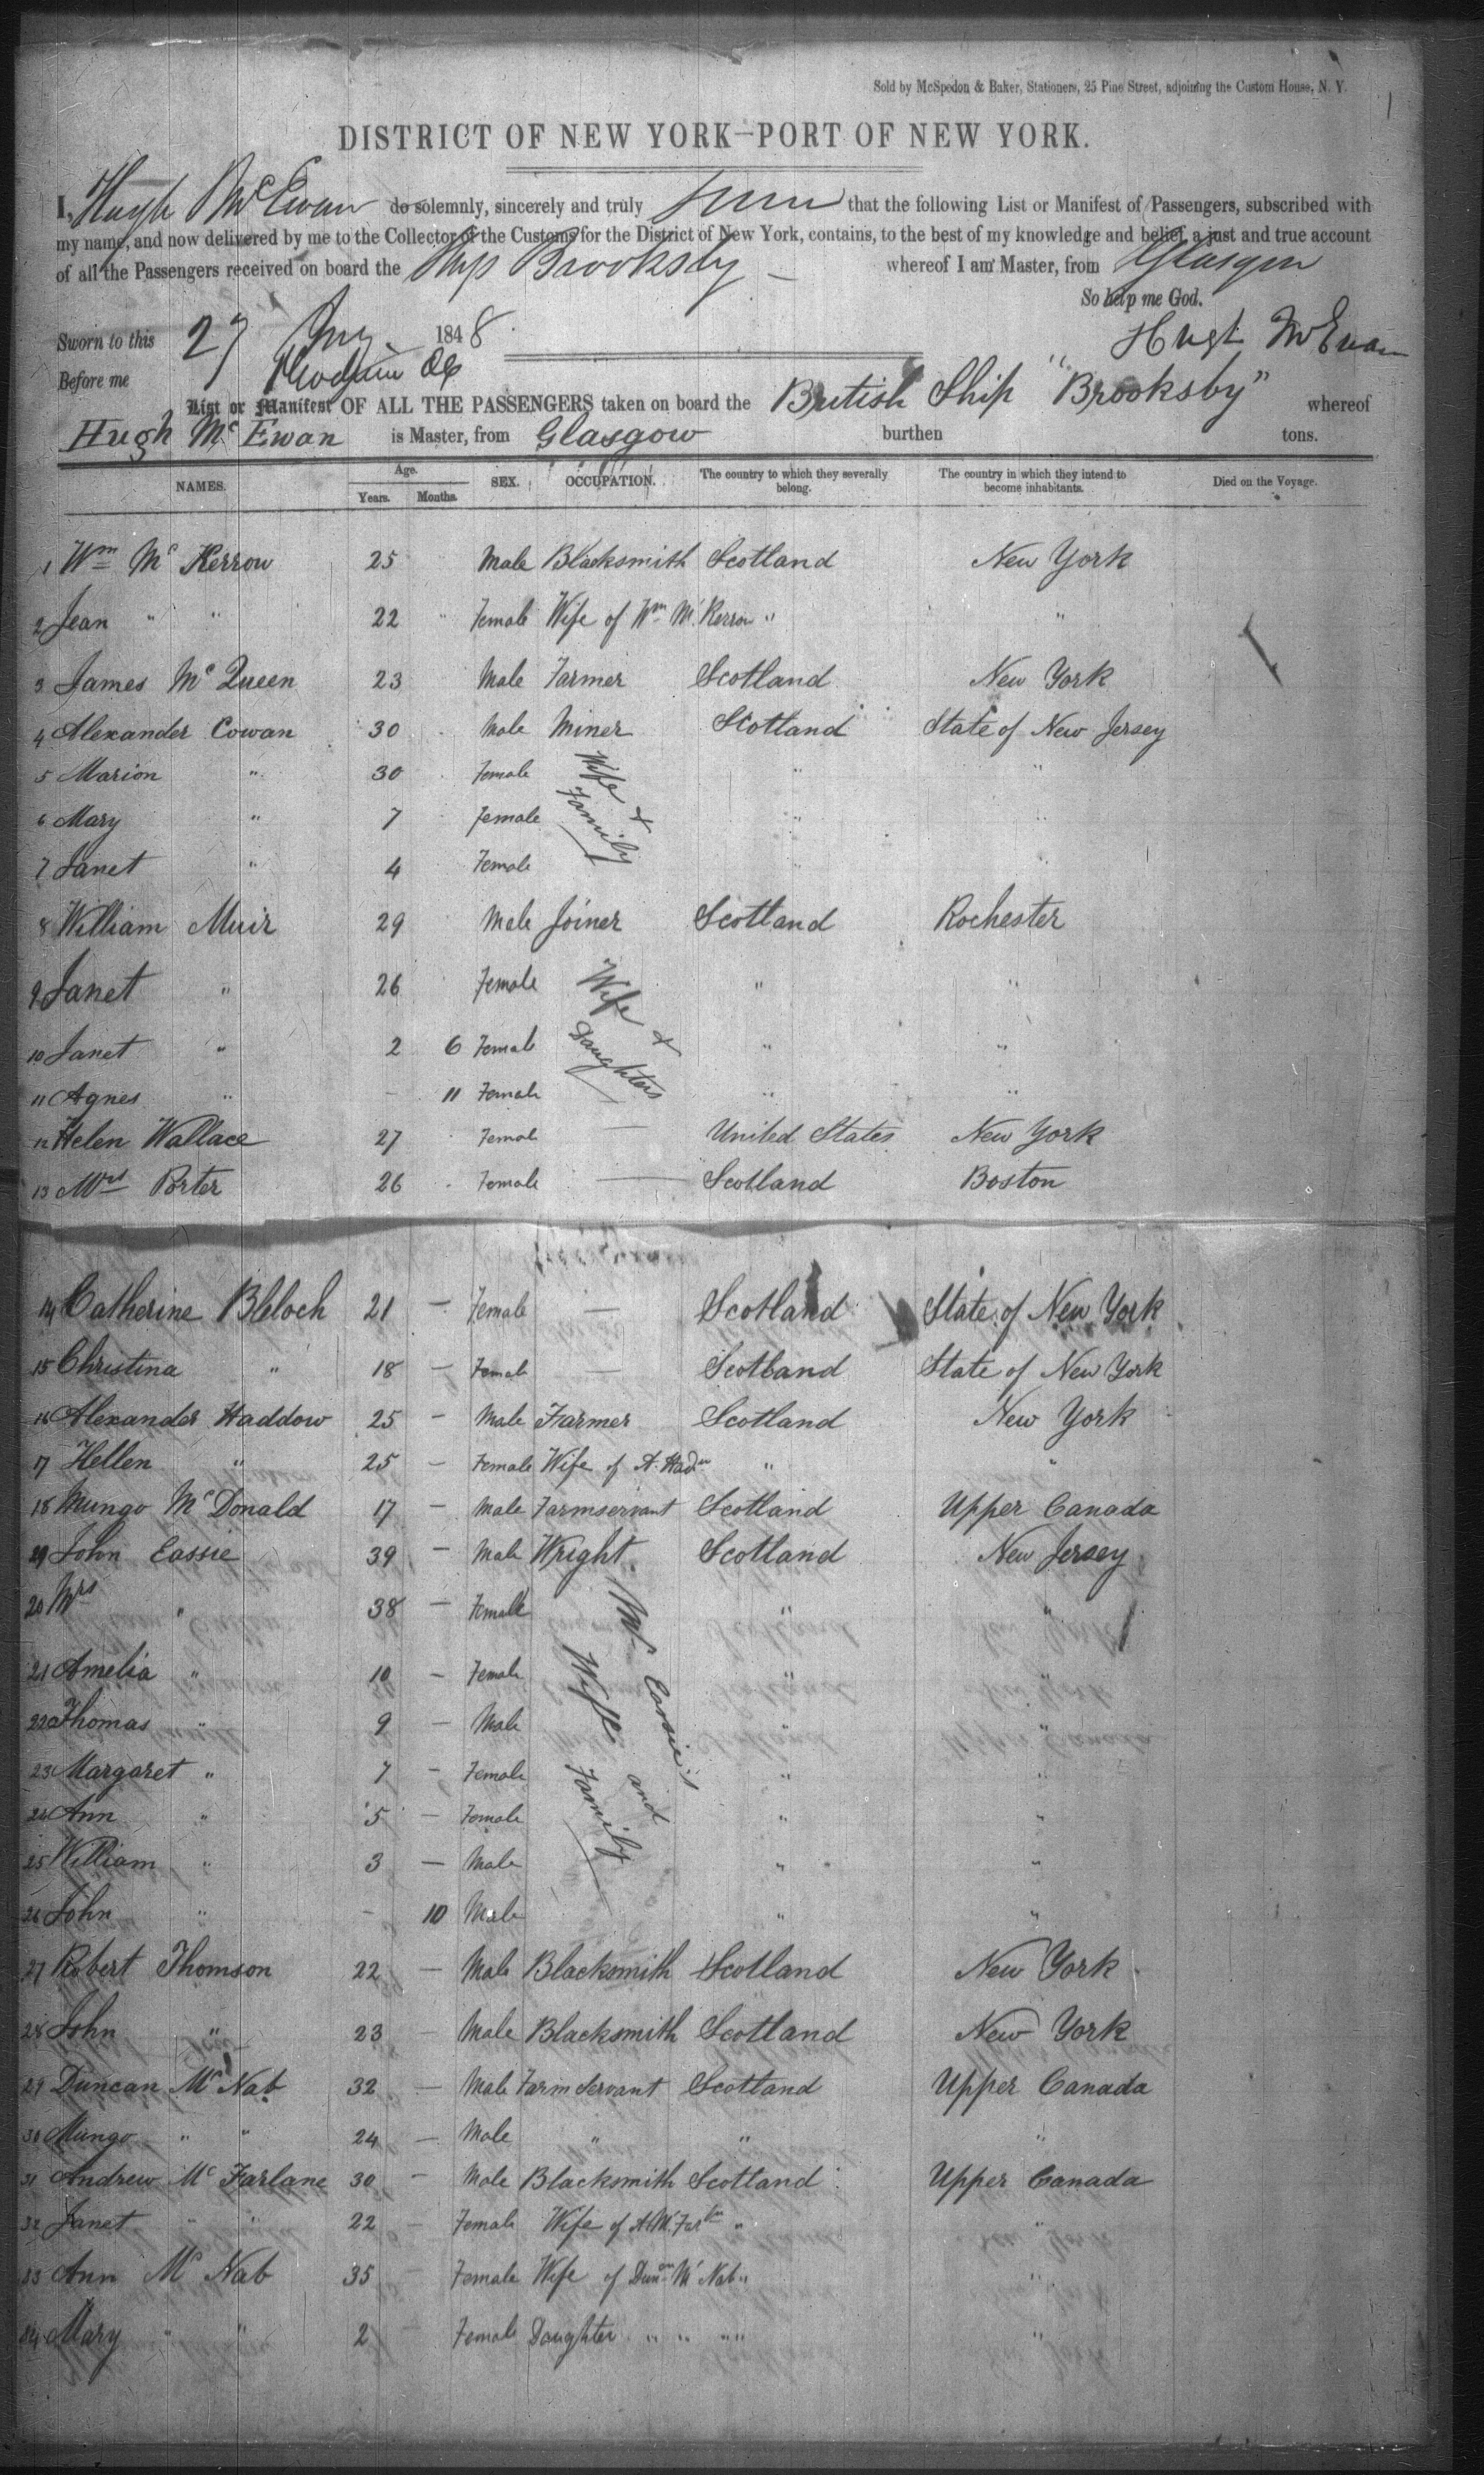 Sold by McSpedon & Baker, Stationers, 25 Pine Street, adjoining the Custom House, N. Y.
DISTRICT OF NEW YORK—PORT OF NEW YORK.
I, Hugh McEwan do solemnly, sincerely and truly that the following List or Manifest of Passengers, subscribed with
my name, and now delivered by me to the Collector of the Customs for the District of New York, contains, to the best of my knowledge and belief, a just and true account
of all the Passengers received on board the Ship Brooksby — whereof I am Master, from Glasgow
So help me God.
Sworn to this 27 1848. Hugh McEwan
Before me
List or Manifest OF ALL THE PASSENGERS taken on board the British Ship "Brooksby" whereof
Hugh McEwan is Master, from Glasgow burthen tons.
NAMES. Age. Years. Months. SEX. OCCUPATION. The country to which they severally belong. The country in which they intend to become inhabitants. Died on the Voyage.
1 Wm Mc Kerrow 25 Male Blacksmith Scotland New York
2 Jean " " 22 " Female Wife of Wm Mc Kerrow " "
3 James Mc Queen 23 Male Farmer Scotland New York
4 Alexander Cowan 30 Male Miner Scotland State of New Jersey
5 Marion " 30 Female Wife & Family " "
6 Mary " 7 female " "
7 Janet " 4 Female " "
8 William Muir 29 Male Joiner Scotland Rochester
9 Janet " 26 Female Wife & Daughters " "
10 Janet " 2 6 Female " "
11 Agnes " - 11 Female " "
12 Helen Wallace 27 Female — United States New York
13 Mrs Porter 26 Female — Scotland Boston
14 Catherine Bleloch 21 — Female — Scotland State of New York
15 Christina " 18 — Female — Scotland State of New York
16 Alexander Haddow 25 — Male Farmer Scotland New York
17 Hellen " 25 — Female Wife of A. Hadw " "
18 Mungo McDonald 17 — Male Farmservant Scotland Upper Canada
19 John Eassie 39 — Male Wright Scotland New Jersey
20 Mrs " 38 — Female Mr Eassie's Wife and Family " "
21 Amelia " 10 — Female " "
22 Thomas " 9 — Male " "
23 Margaret " 7 — Female " "
24 Ann " 5 — Female " "
25 William " 3 — Male " "
26 John " - 10 Male " "
27 Robert Thomson 22 — Male Blacksmith Scotland New York
28 John " 23 — Male Blacksmith Scotland New York
29 Duncan Mc Nab 32 — Male Farm Servant Scotland Upper Canada
30 Mungo " " 24 — Male " " "
31 Andrew Mc Farlane 30 — Male Blacksmith Scotland Upper Canada
32 Janet " " 22 — Female Wife of A. Mc Farlne " "
33 Ann Mc Nab 35 — Female Wife of Duncn Mc Nab " "
34 Mary " " 2 Female Daughter " " " " "